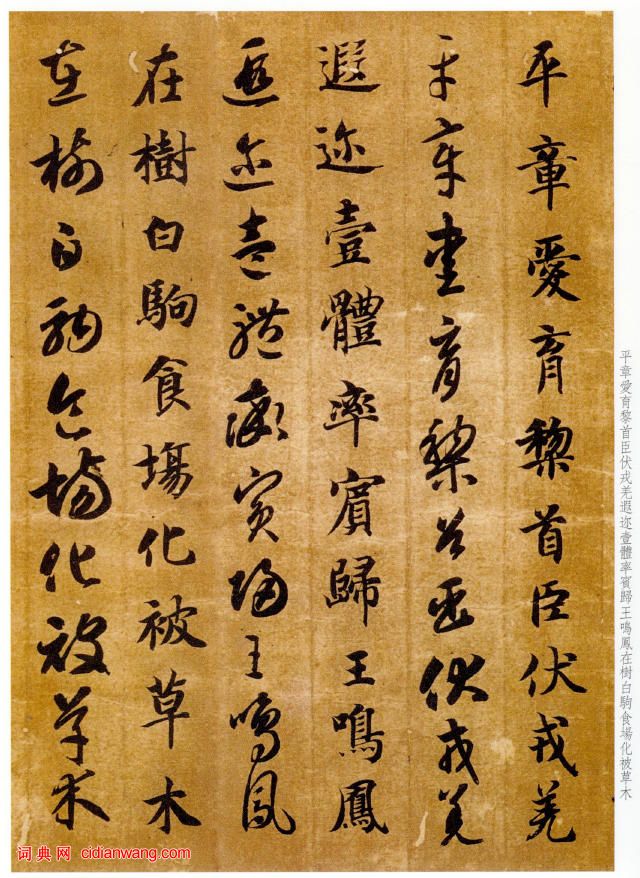 平章愛育黎首臣伏戎羌
平章愛育黎首臣伏戎羌
遐迩壹體率賓歸王鳴鳳
遐迩壹體率賓歸王鳴鳳
在樹白駒食場化被草木
在樹白駒食場化被草木
平章愛育黎首臣伏戎羌遐迩壹體率賓歸王鳴鳳在樹白駒食場化被草木
词典网 cidianwang.com